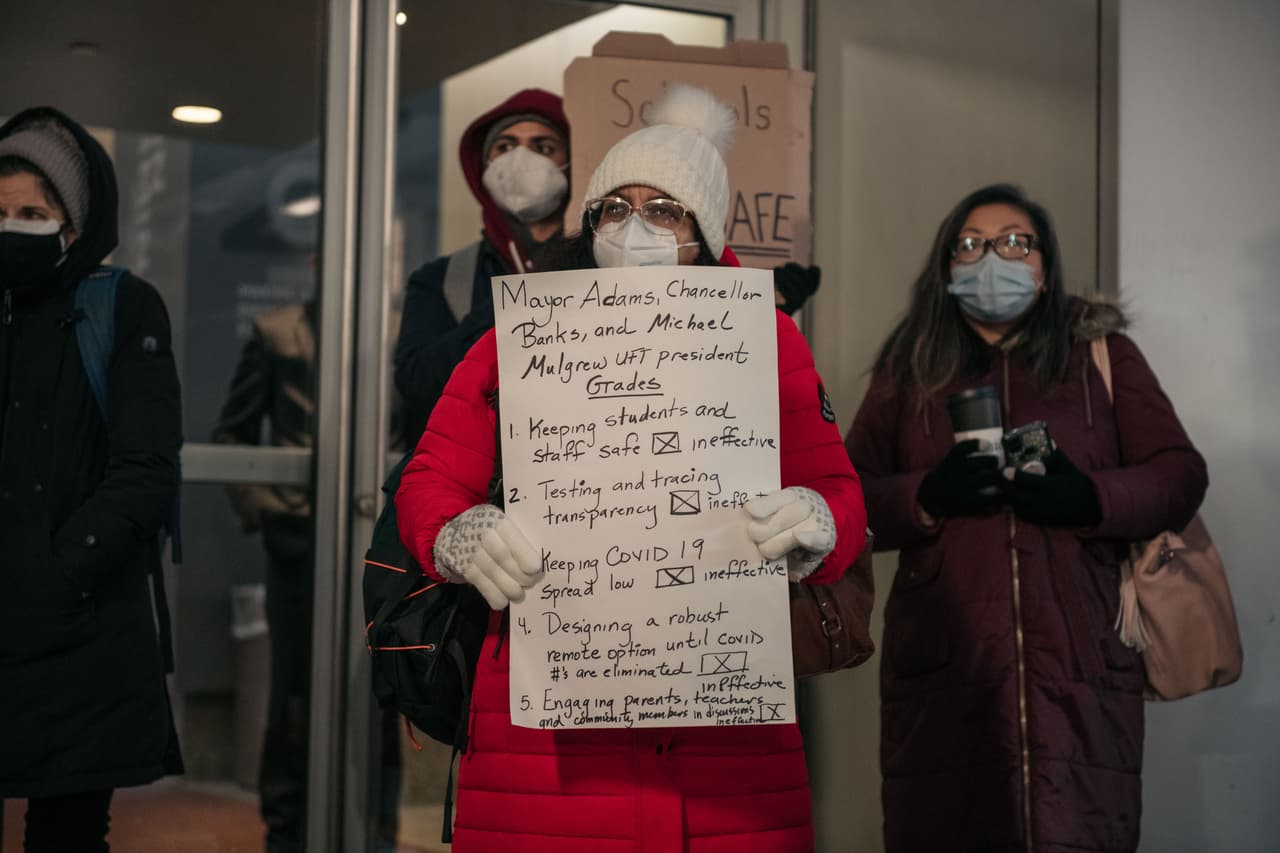 Schools
SAFE
Mayor Adams, Chancellor
Banks, and Michael
Mulgrew UFT president
Grades
1. Keeping students and
staff safe ☒ ineffective
2. Testing and tracing
transparency ☒ ineffect
Keeping COVID 19
spread low ☒ ineffective
4. Designing a robust
remote option until covid
#'s are eliminated ☒
ineffective
5. Engaging parents, teachers
and community members in discussions ☒
ineffective